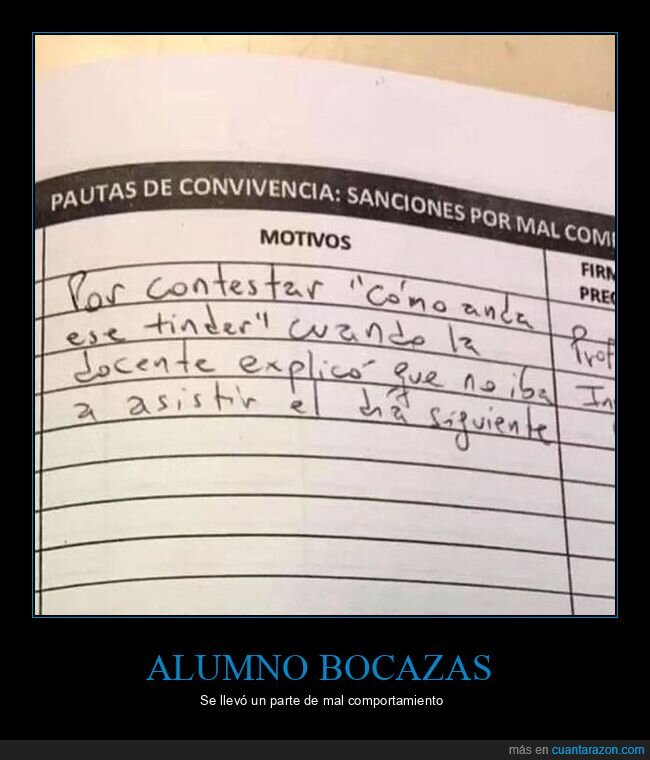 PAUTAS DE CONVIVENCIA: SANCIONES POR MAL COM
MOTIVOS
FIRM
PREC
Por contestar "Cómo anda
ese tinder" cuando la
docente explicó que no iba
a asistir el día siguiente
Prof
In
ALUMNO BOCAZAS
Se llevó un parte de mal comportamiento
más en cuantarazon.com